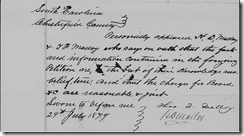 South Carolina
Chesterfield County
Personally appeared H. D. Malloy
& T. H. Malloy who say on oath that the facts
and information contained in the foregoing
Petition are to the best of their knowledge and
belief true, and that the charges for Board
&c are reasonable & just
Sworn to before me
29th July 1879